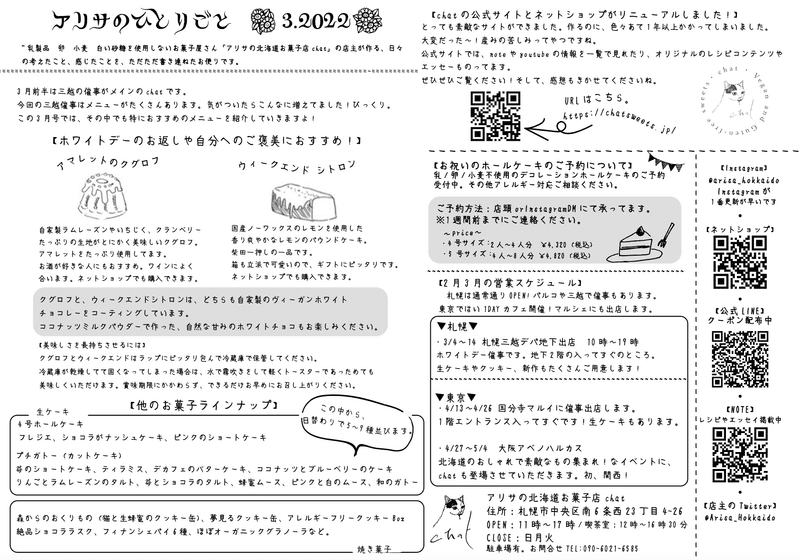 アリサのひとりごと 3.2022
"乳製品 卵 小麦 白い砂糖を使用しないお菓子屋さん「アリサの北海道お菓子店chat」の店主が作る、日々
の考えたこと、感じたことを、ただただ書き連ねたお便りです。
3月前半は三越の催事がメインのchatです。
今回の三越催事はメニューがたくさんあります。気がついたらこんなに増えてました!びっくり。
この3月号では、その中でも特におすすめのメニューを紹介していきますよ!
【ホワイトデーのお返しや自分へのご褒美におすすめ!】
アマレットのクグロフ
自家製ラムレーズンやいちじく、クランベリー
たっぷりの生地がとにかく美味しいクグロフ。
アマレットをたっぷり使用してます。
お酒が好きな人にもおすすめ。ワインによく
合います。ネットショップでも購入できます。
ウィークエンド シトロン
国産ノーワックスのレモンを使用した
香り爽やかなレモンのパウンドケーキ。
柴田一押しの一品です。
箱も立派で可愛いので、ギフトにピッタリです。
ネットショップでも購入できます。
クグロフと、ウィークエンドシトロンは、どちらも自家製のヴィーガンホワイト
チョコレーをコーティングしています。
ココナッツミルクパウダーで作った、自然な甘みのホワイトチョコもお楽しみください。
【美味しさを長持ちさせるには】
クグロフとウィークエンドはラップにピッタリ包んで冷蔵庫で保管してください。
冷蔵庫が乾燥してて固くなってしまった場合は、水で霧吹きをして軽くトースターであっためても
美味しくいただけます。賞味期限にかかわらず、できるだけお早めにお召し上がりください。
【他のお菓子ラインナップ】
この中から、
日替わりで5〜9種並びます。
生ケーキ
4号ホールケーキ
フレジエ、ショコラがナッシュケーキ、ピンクのショートケーキ
プチガトー(カットケーキ)
苺のショートケーキ、ティラミス、デカフェのバターケーキ、ココナッツとブルーベリーのケーキ
りんごとラムレーズンのタルト、苺とショコラのタルト、蜂蜜ムース、ピンクと白のムース、和のガトー
森からのおくりもの(猫と生蜂蜜のクッキー缶)、夢見るクッキー缶、アレルギーフリークッキーBoz
絶品ショコララスク、フィナンシェパイ6種、ほぼオーガニックグラノーラなど。
焼き菓子
【chatの公式サイトとネットショップがリニューアルしました!】
とっても素敵なサイトができました。作るのに、色々あて1年以上かかってしまいました。
大変だった〜!産みの苦しみってやつですね。
公式サイトでは、noteやyoutubeの情報を一覧で見れたり、オリジナルのレシピコンテンツや
エッセーものってます。
ぜひぜひご覧ください!そして、感想もきかせてくださいね。
URLはこちら。
https://chatsweets.jp/
chat · Vegan and Guten-free sweets ·
chat
【お祝いのホールケーキのご予約について】
乳/卵/小麦不使用のデコレーションホールケーキのご予約
受付中。その他アレルギー対応ご相談ください。
ご予約方法:店頭orInstagramDMにて承ってます。
※1週間前までにご連絡ください。
〜price〜
・4号サイズ:2人〜4人分 ¥4,320(税込)
・5号サイズ:4人〜8人分 ¥4,820(税込)
【2月3月の営業スケジュール】
札幌は通常通りOPEN!パルコや三越で催事もあります。
東京ではい1DAYカフェ開催!マルシェにも出店します。
▼札幌▼
・3/4〜14 札幌三越デパ地下出店 10時〜19時
ホワイトデー催事です。地下2階の入ってすぐのところ。
生ケーキやクッキー、新作もたくさんご用意します!
▼東京▼
・4/13〜4/26 国分寺マルイに催事出店します。
1階エントランス入ってすぐです!生ケーキもあります。
・4/27〜5/4 大阪アベノハルカス
北海道のおしゃれで素敵なもの集まれ!なイベントに、
chatも登場させていただきます。初、関西!
chat
アリサの北海道お菓子店chat
住所:札幌市中央区南6条西23丁目4-26
OPEN:11時〜17時/喫茶室:12時〜16時30分
CLOSE:日月火
駐車場有。お問合せTEL:090-6021-6585
【Instagram】
@arisa_hokkaido
Instagramが
1番更新が早いです
【ネットショップ】
【公式LINE】
クーポン配布中
【NOTE】
レシピやエッセイ掲載中
【店主のTwitter】
@Arisa_Hokkaido